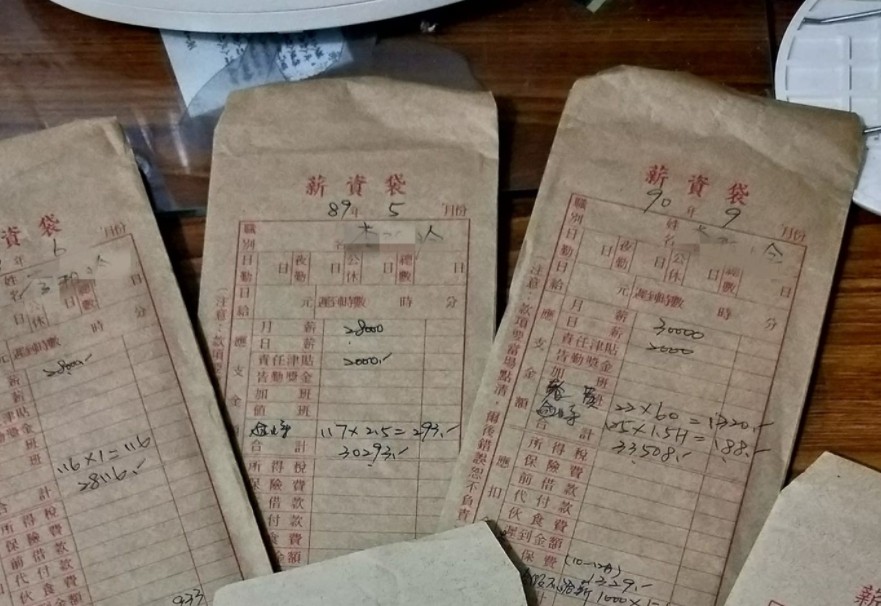 資袋
年 6
姓名
公休 日 總數 日
時 分
元 遲到時數
28000.-
116×1=116
28116.-
合計
所得稅
保險費
前借款
代付款
伙食費
金額
933
薪資袋
89年 5 月份
職別 名
日勤 日 夜勤 日 公休 日 總數 日
日給 元 遲到時數 時 分
月薪 28000
日薪
責任津貼 2000.-
皆勤獎金
加班
值班
117×2.5=293.-
合計 30293.-
所得稅
保險費
借款
付款
伙食費
金額
應支金
注意:款項要
薪資袋
90年 9 月份
職別 姓名
日勤 日 夜勤 日 公休 日 總數 日
日給 元 遲到時數 時 分
月薪 30000
日薪
責任津貼 2000
皆勤獎金
加班
22×60=1320.-
125×1.5H=188.-
合計 33508.-
所得稅
保險費
前借款
代付款
伙食費
遲到金額
保費 (10-12月)
1329.-
應支金額
應扣
注意:款項要當場點清 爾後錯誤恕不負責
薪